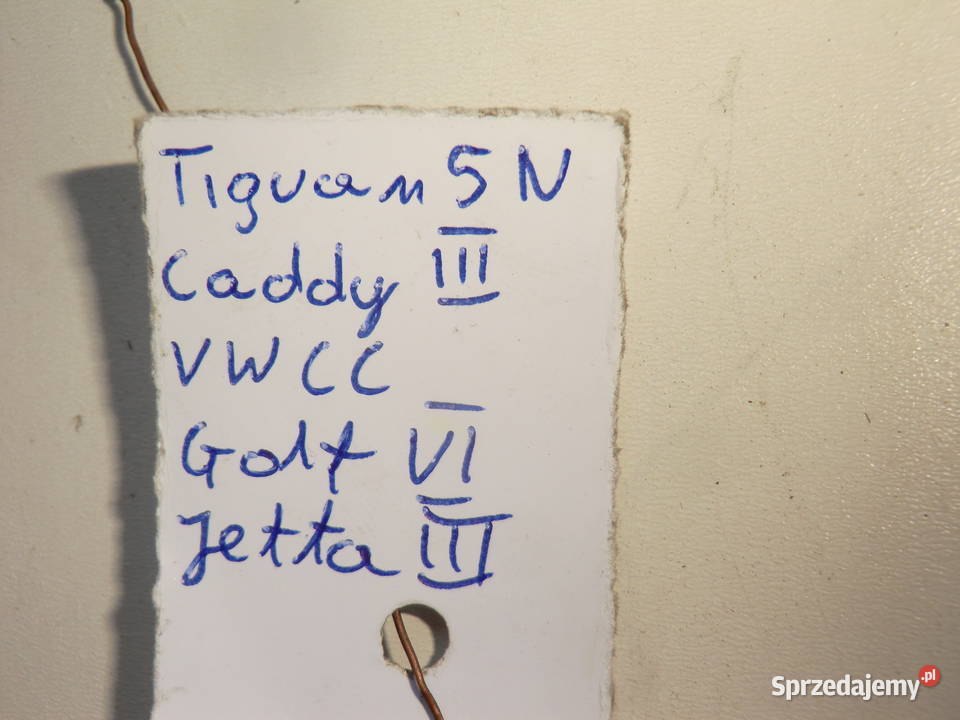 Tiguan 5N
Caddy III
VW CC
Golf VI
Jetta III
Sprzedajemy.pl